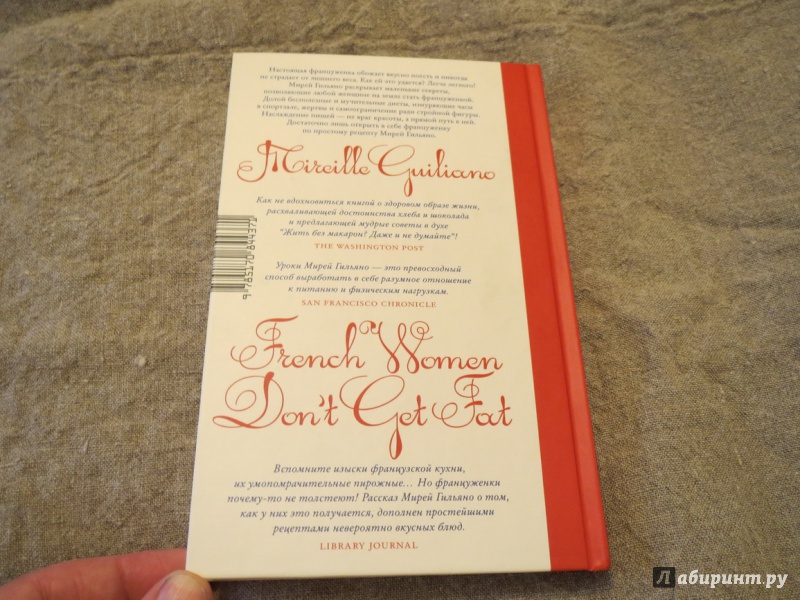 Настоящая француженка обожает вкусно поесть и никогда
не страдает от лишнего веса. Как ей это удается? Легче легкого!
Мирей Гильяно раскрывает маленькие секреты,
позволяющие любой женщине на земле стать француженкой.
Долой бесполезные и мучительные диеты, изнуряющие часы
в спортзале, жертвы и самоограничение ради стройной фигуры.
Наслаждение пищей — не враг красоты, а прямой путь к ней.
Достаточно лишь открыть в себе француженку
по простому рецепту Мирей Гильяно.
Mireille Guiliano
Как не вдохновиться книгой о здоровом образе жизни,
расхваливающей достоинства хлеба и шоколада
и предлагающей мудрые советы в духе
"Жить без макарон? Даже и не думайте"!
THE WASHINGTON POST
9 785170 844371
Уроки Мирей Гильяно — это превосходный
способ выработать в себе разумное отношение
к питанию и физическим нагрузкам.
SAN FRANCISCO CHRONICLE
French Women
Don't Get Fat
Вспомните изыски французской кухни,
их умопомрачительные пирожные... Но француженки
почему-то не толстеют! Рассказ Мирей Гильяно о том,
как у них это получается, дополнен простейшими
рецептами невероятно вкусных блюд.
LIBRARY JOURNAL
Лабиринт.ру